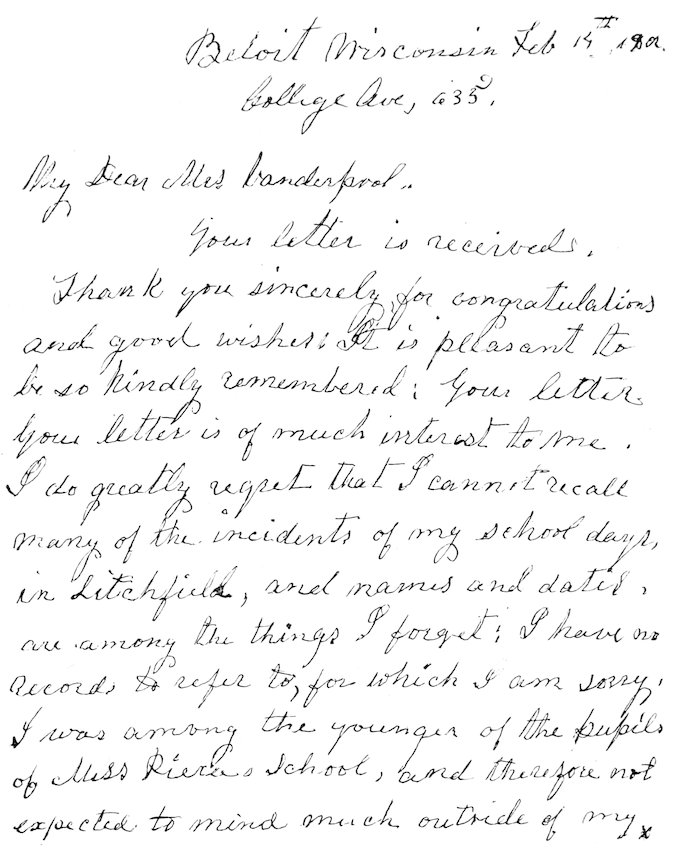 Beloit Wisconsin Feb 14th
College Ave, 635.
My Dear Mrs Vanderpool.
Your letter is received.
Thank you sincerely, for congratulations
and good wishes: It is pleasant to
be so kindly remembered: Your letter
Your letter is of much interest to me.
I do greatly regret that I cannot recall
many of the incidents of my school days,
in Litchfield, and names and dates,
are among the things I forget: I have no
records to refer to, for which I am sorry.
I was among the younger of the pupils
of Miss Pierces School, and therefore not
expected to mind much outside of my